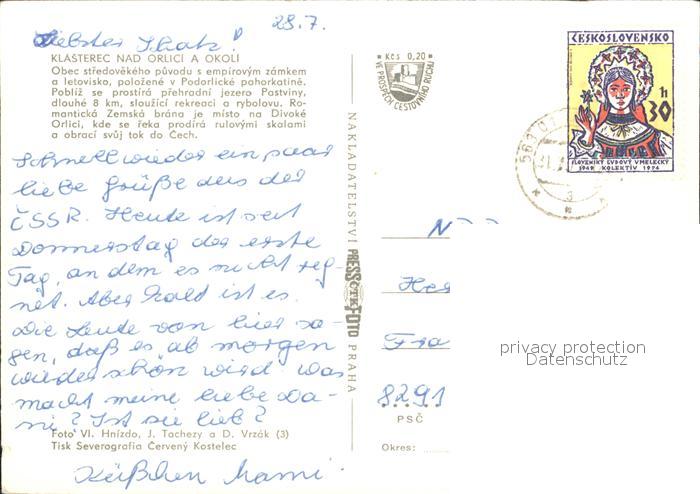 28.7.
Liebster Schatz!
KLÁŠTEREC NAD ORLICÍ A OKOLÍ
Obec středověkého původu s empírovým zámkem
a letovisko, položené v Podorlické pahorkatině.
Poblíž se prostírá přehradní jezero Pastviny,
dlouhé 8 km, sloužící rekreaci a rybolovu. Ro-
mantická Zemská brána je místo na Divoké
Orlici, kde se řeka prodírá rulovými skalami
a obrací svůj tok do Čech.
Schnell wieder ein paar
liebe Grüße aus der
ČSSR. Heute ist seit
Donnerstag der erste
Tag, an dem es nicht reg-
net. Aber kalt ist es.
Die Leute von hier sa-
gen, daß es ab morgen
wieder schön wird. Was
macht meine liebe Da-
ni? Ist sie lieb?
Foto Vl. Hnízdo, J. Tachezy a D. Vrzák (3)
Tisk Severografia Červený Kostelec
Küßchen Mami.
NAKLADATELSTVÍ PRESSFOTO PRAHA
ČTK
Kčs 0,20
VE PROSPĚCH CESTOVNÍHO RUCHU
ČESKOSLOVENSKO
30 h
SLOVENSKÝ ĽUDOVÝ UMELECKÝ
1949 KOLEKTÍV 1974
N
Her
Fra
8291
PSČ
Okres:
privacy protection
Datenschutz